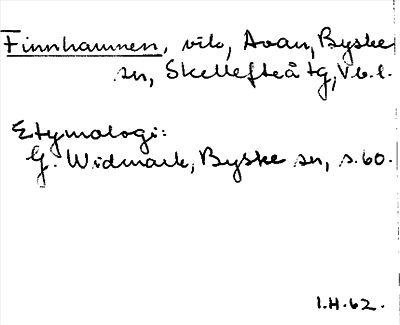 Finnhamnen, vik, Avan, Byske
sn, Skellefteå tg, Vb.l.
Etymologi:
G. Widmark, Byske sn, s. 60.
I.H. 62.